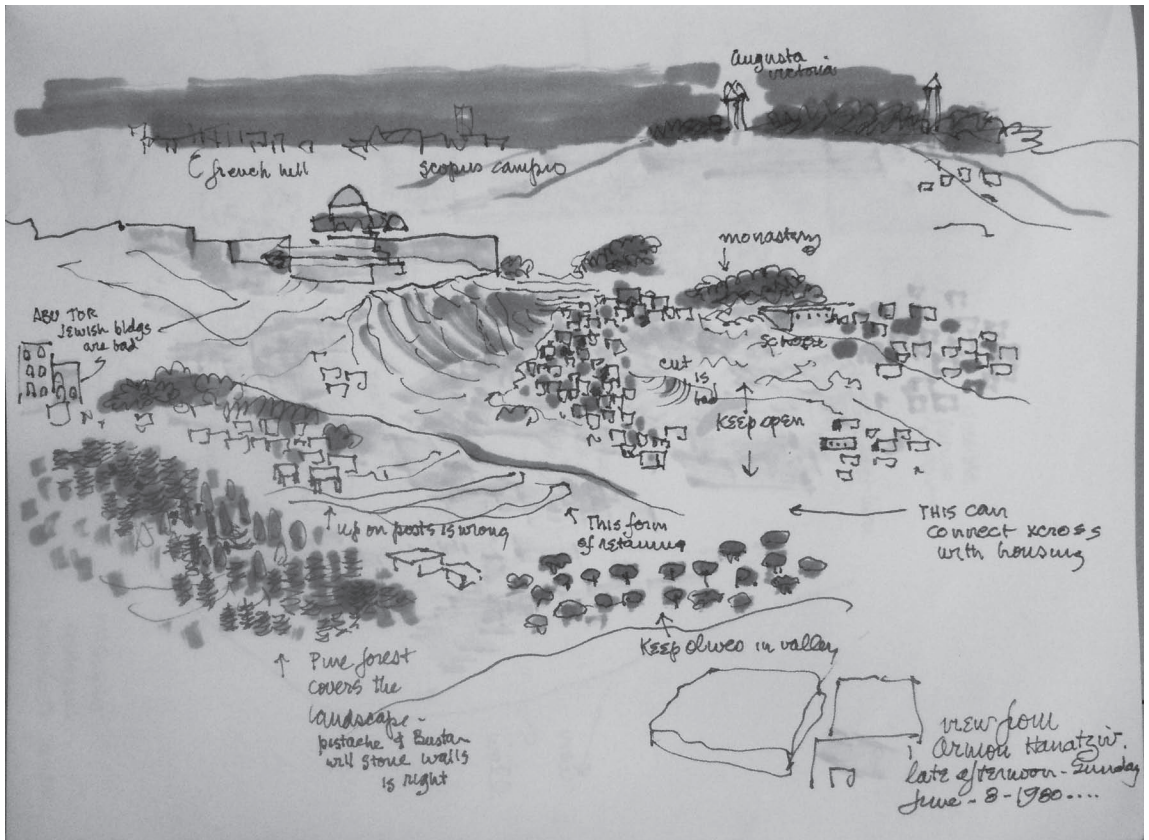 Augusta
victoria
french hill
scopus campus
monastery
ABU TOR
Jewish bldgs
are bad
school
cut
is
bad
Keep open
up on posts is wrong
This form
of retaining
THIS can
connect across
with housing
Keep olives in valley
Pine forest
covers the
landscape -
pistache & Bustan
will stone walls
is right
view from
Armon Hanatziv.
late afternoon - Sunday
June - 8 - 1980....